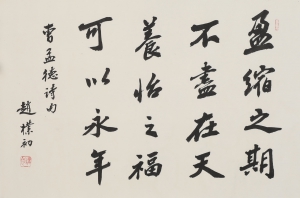 盈缩之期
不盡在天
養怡之福
可以永年
曹孟德詩句
趙樸初